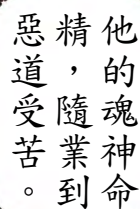 他的魂神命
精，隨業到
惡道受苦。